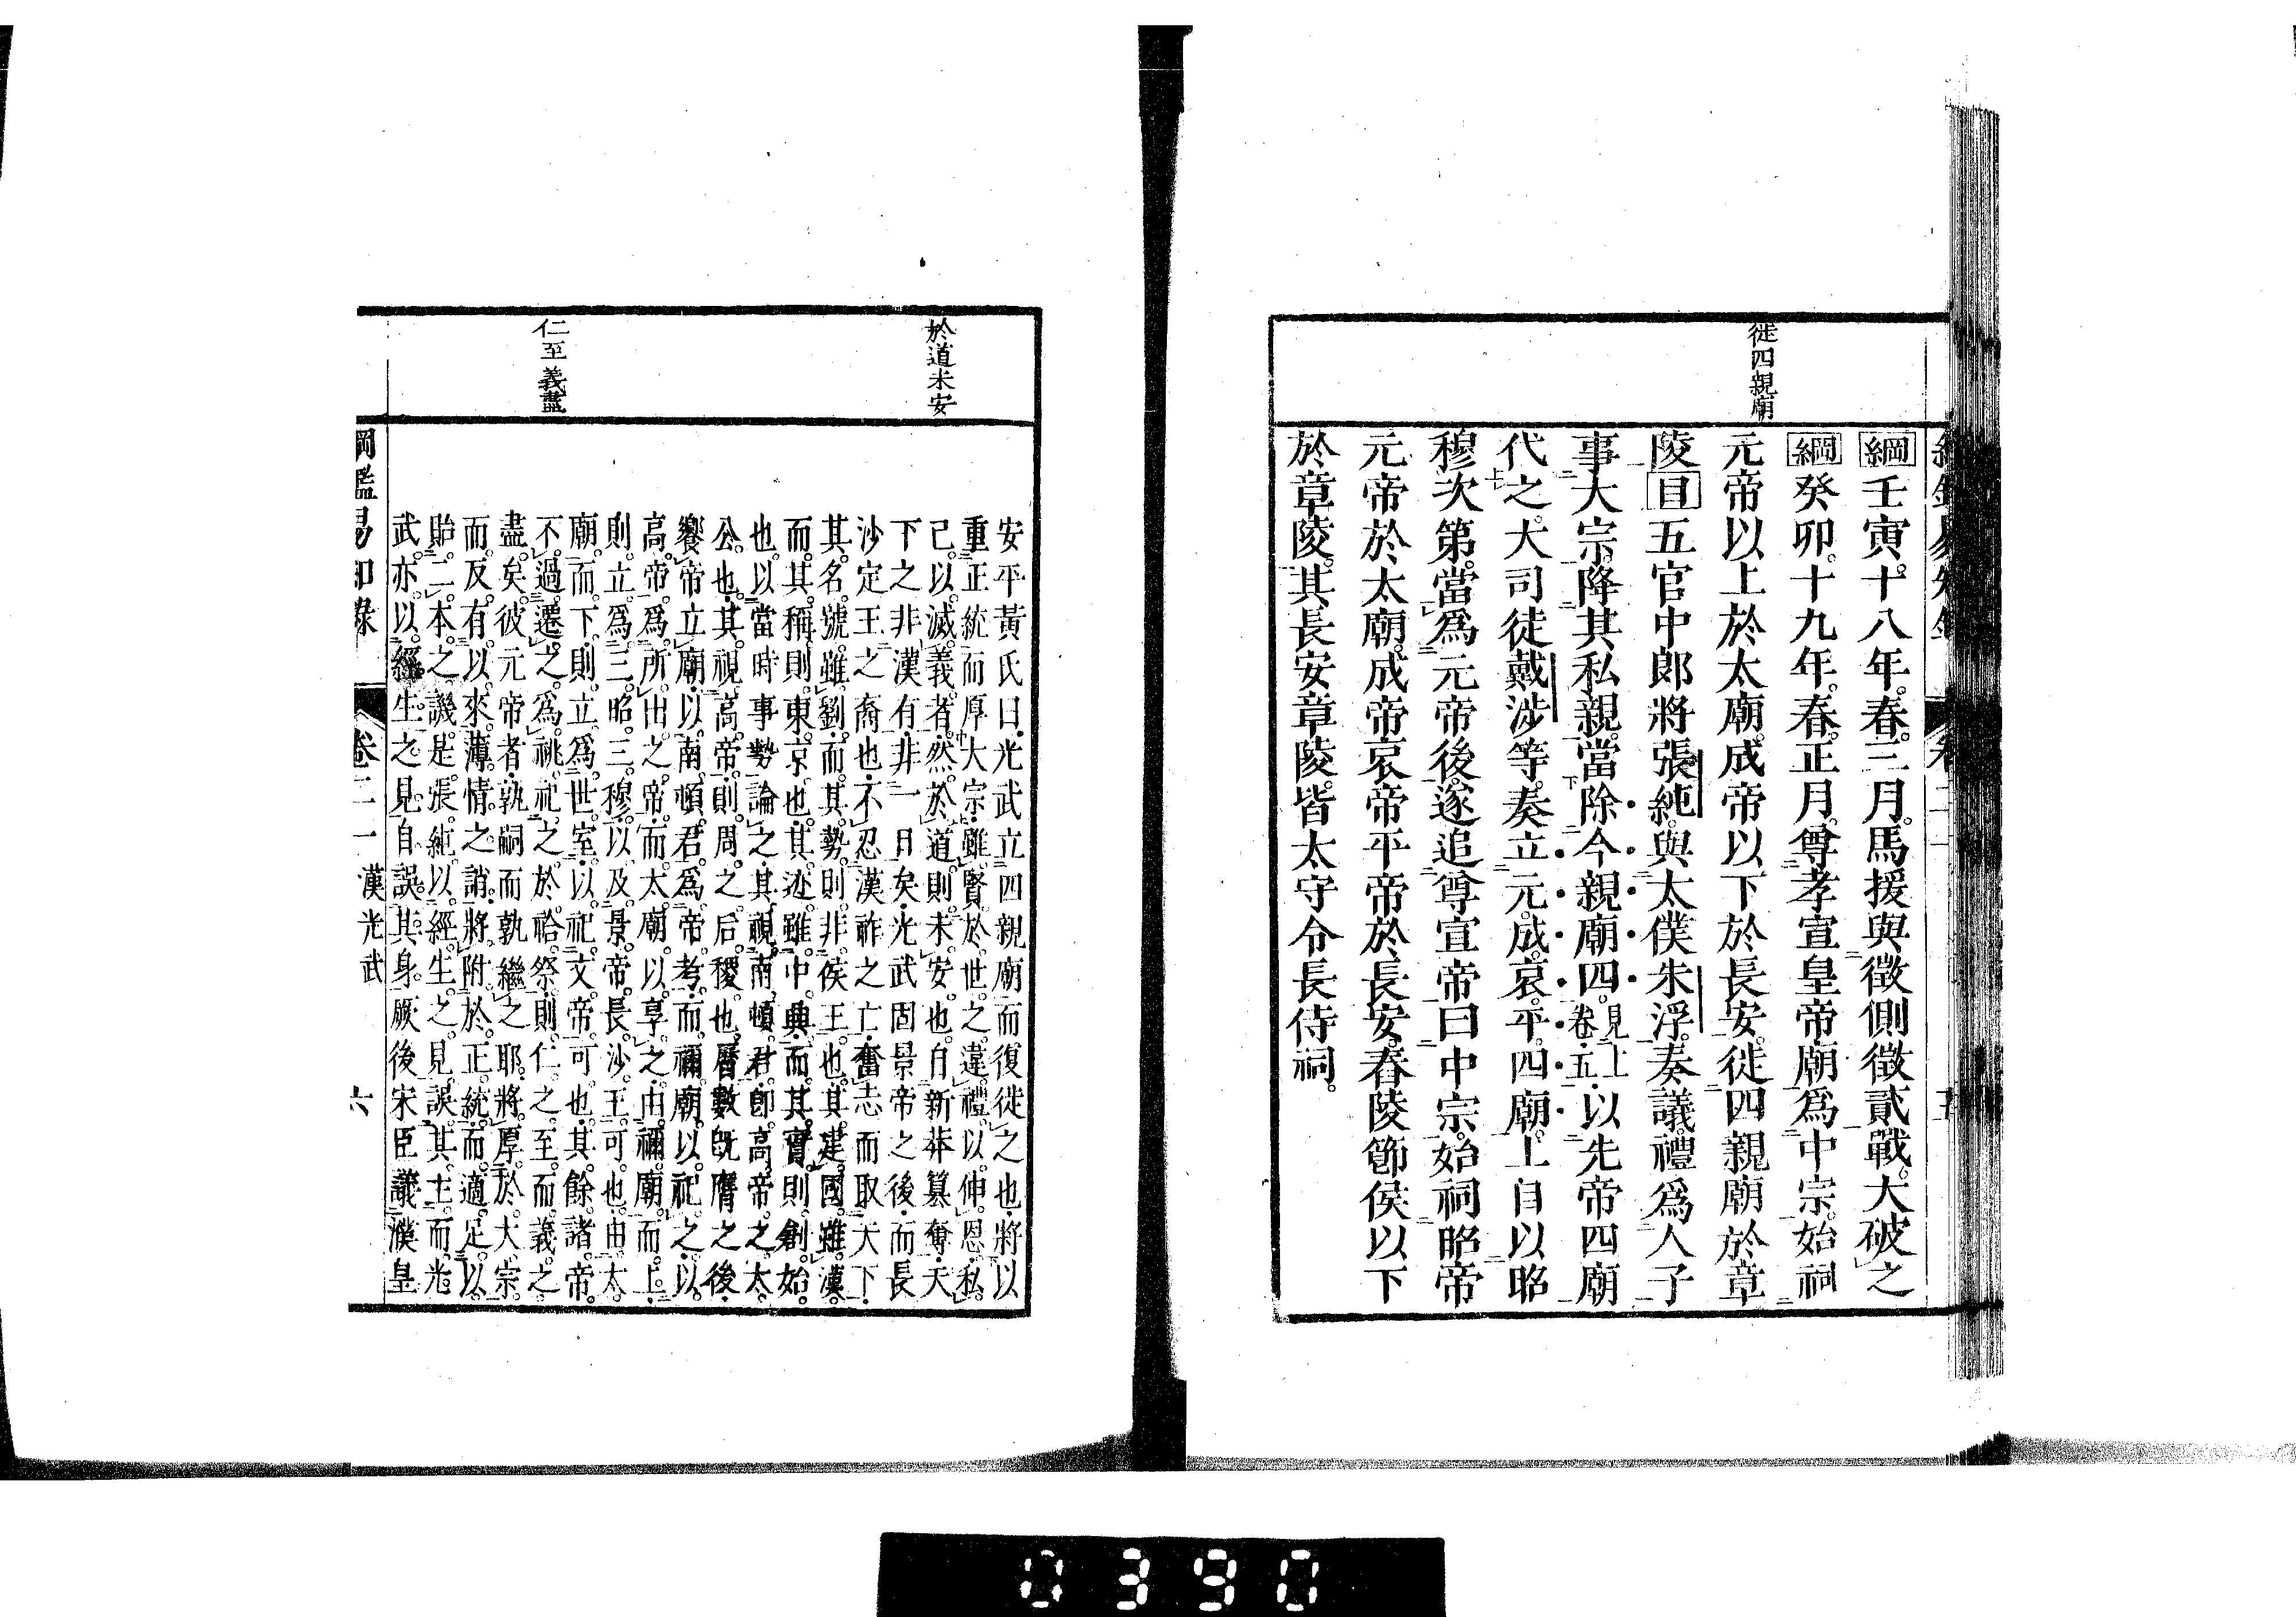 徙四親廟
綱壬寅十八年春三月馬援與徵側徵貳戰大破之
綱癸卯十九年春正月尊孝宣皇帝廟爲中宗始祠
元帝以上於太廟成帝以下於長安徙四親廟於章
陵目五官中郎將張純與太僕朱浮奏議禮爲人子
事大宗降其私親當除今親廟四見上卷五以先帝四廟
代之大司徒戴涉等奏立元成哀平四廟上自以昭
穆次第當爲元帝後遂追尊宣帝曰中宗始祠昭帝
元帝於太廟成帝哀帝平帝於長安舂陵節侯以下
於章陵其長安章陵皆太守令長侍祠
於道未安
仁至義盡
安平黃氏曰光武立四親廟而復徙之也將以
重正統而厚大宗雖賢於世之違禮以伸恩私
己以滅義者然於道則未安也自新莽篡奪天
下之非漢有非一日矣光武固景帝之後而長
沙定王之裔也不忍漢祚之亡奮志而取天下
其名號雖劉而其勢則非侯王也其建國雖漢
而其稱則東京也其迹雖中興而其實則創始
也以當時事勢論之其視南頓君卽高帝之太
公也其視高帝則周之后稷也曆數旣膺之後
饗帝立廟以南頓君爲帝考而禰廟以祀之以
高帝爲所出之帝而太廟以享之由禰廟而上
則立爲三昭三穆以及景帝長沙王可也由太
廟而下則立爲世室以祀文帝可也其餘諸帝
不過遷之爲祧祀之於祫祭則仁之至而義之
盡矣彼元帝者孰嗣而孰繼之耶將厚於大宗
而反有以來薄情之誚將附於正統而適足以
貽二本之譏是張純以經生之見誤其主而光
武亦以經生之見自誤其身厥後宋臣議濮皇
綱鑑易知錄 卷二一 漢光武 六